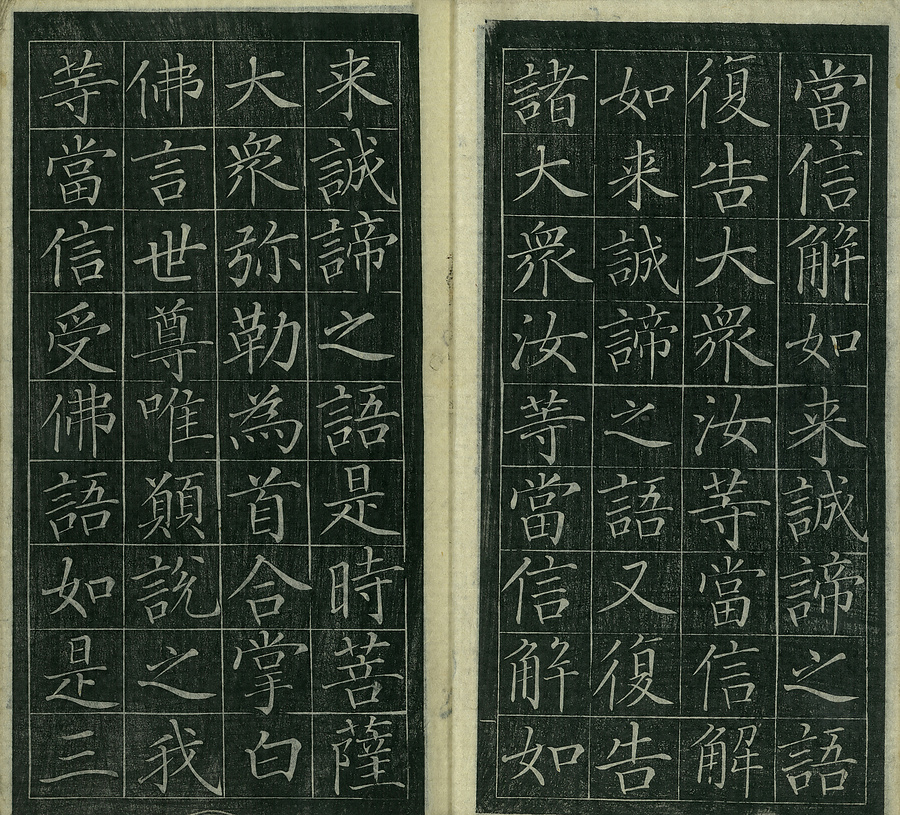 當信解如来誠諦之語
復告大衆汝等當信解
如来誠諦之語又復告
諸大衆汝等當信解如
来誠諦之語是時菩薩
大衆弥勒為首合掌白
佛言世尊唯願說之我
等當信受佛語如是三